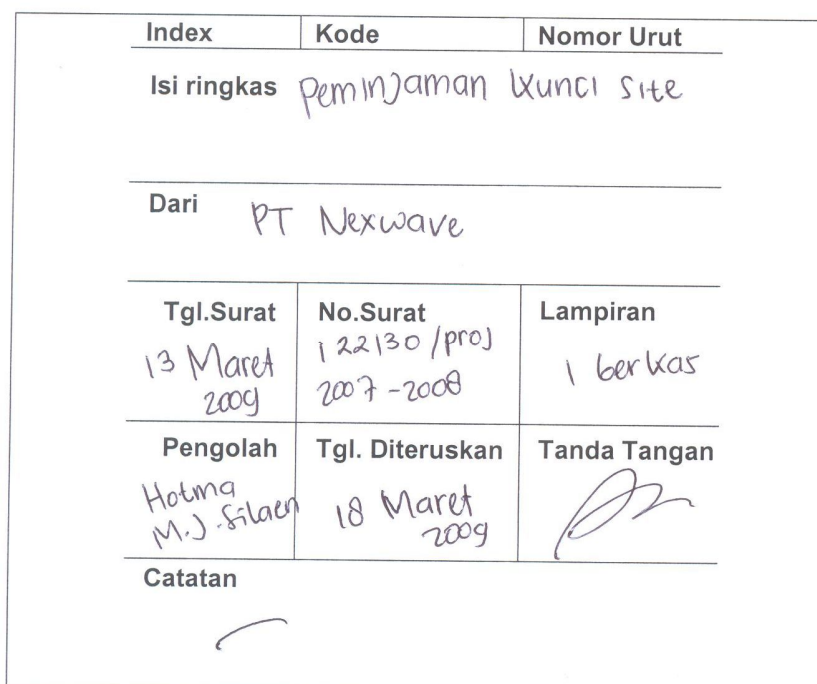 Index Kode Nomor Urut
Isi ringkas Peminjaman kunci site
Dari PT Nexwave
Tgl.Surat No.Surat Lampiran
13 Maret 2009 122130/proj 2007-2008 1 berkas
Pengolah Tgl. Diteruskan Tanda Tangan
Hotma M.J.Silaen 18 Maret 2009
Catatan